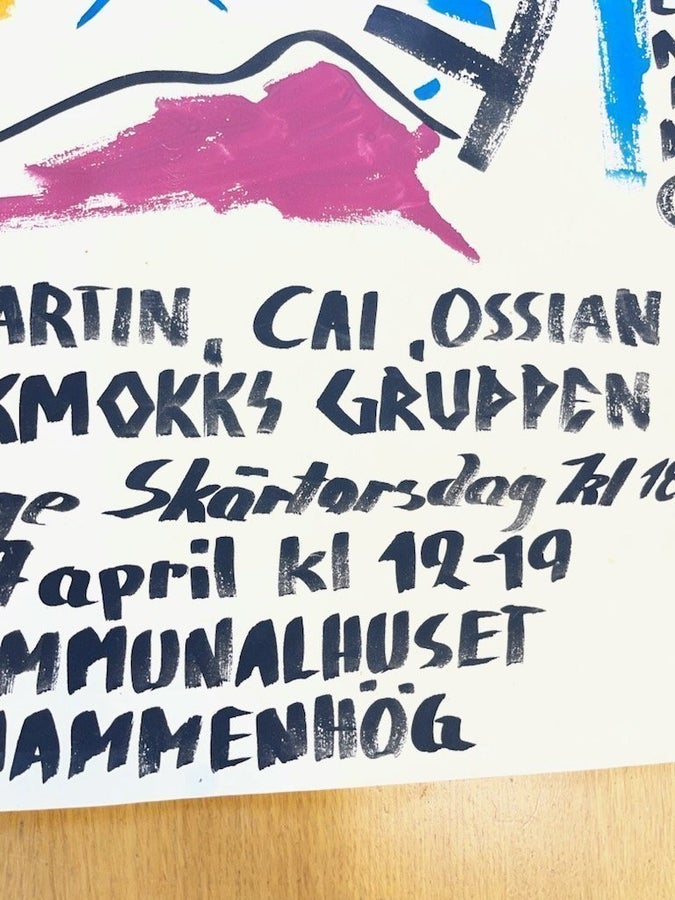 ARTIN, CAI, OSSIAN
KMOKKS GRUPPEN
ge Skärtorsdag kl 18
7 april kl 12-19
MMUNALHUSET
HAMMENHÖG